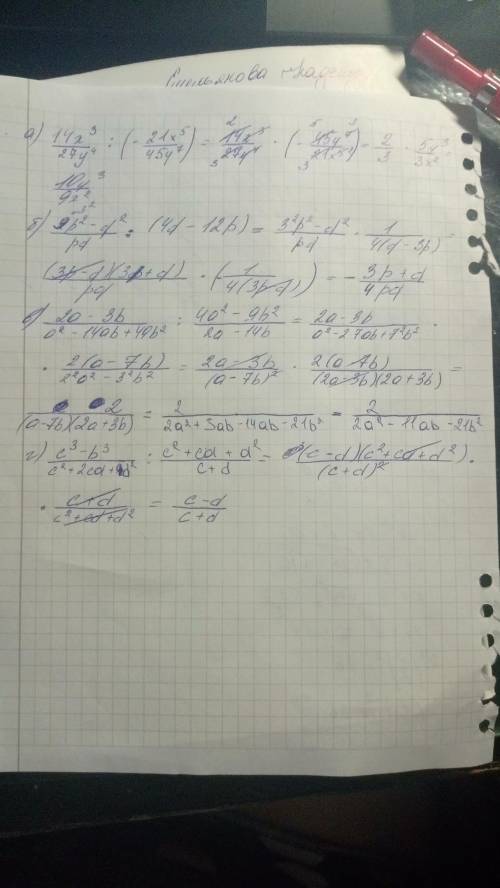 а) 14x³/27y⁴ : (- 21x⁵/45y⁷) = 14x³/27y⁴ · (- 45y⁷/21x⁵) = 2/3 · 5y³/3x² =
10y³/9x²
б) 9p²-d²/pd : (4d-12p) = 3²p²-d²/pd · 1/4(d-3p) =
(3p-d)(3p+d)/pd · (1/4(3p-d)) = - 3p+d/4pd
в) 2a-3b/a²-14ab+49b² : 4a²-9b²/2a-14b = 2a-3b/a²-2·7ab+7²b² ·
· 2(a-7b)/2²a²-3²b² = 2a-3b/(a-7b)² · 2(a-7b)/(2a-3b)(2a+3b) =
2/(a-7b)(2a+3b) = 2/2a²+3ab-14ab-21b² = 2/2a²-11ab-21b²
г) c³-b³/c²+2cd+d² : c²+cd+d²/c+d = (c-d)(c²+cd+d²)/(c+d)² ·
· c+d/c²+cd+d² = c-d/c+d